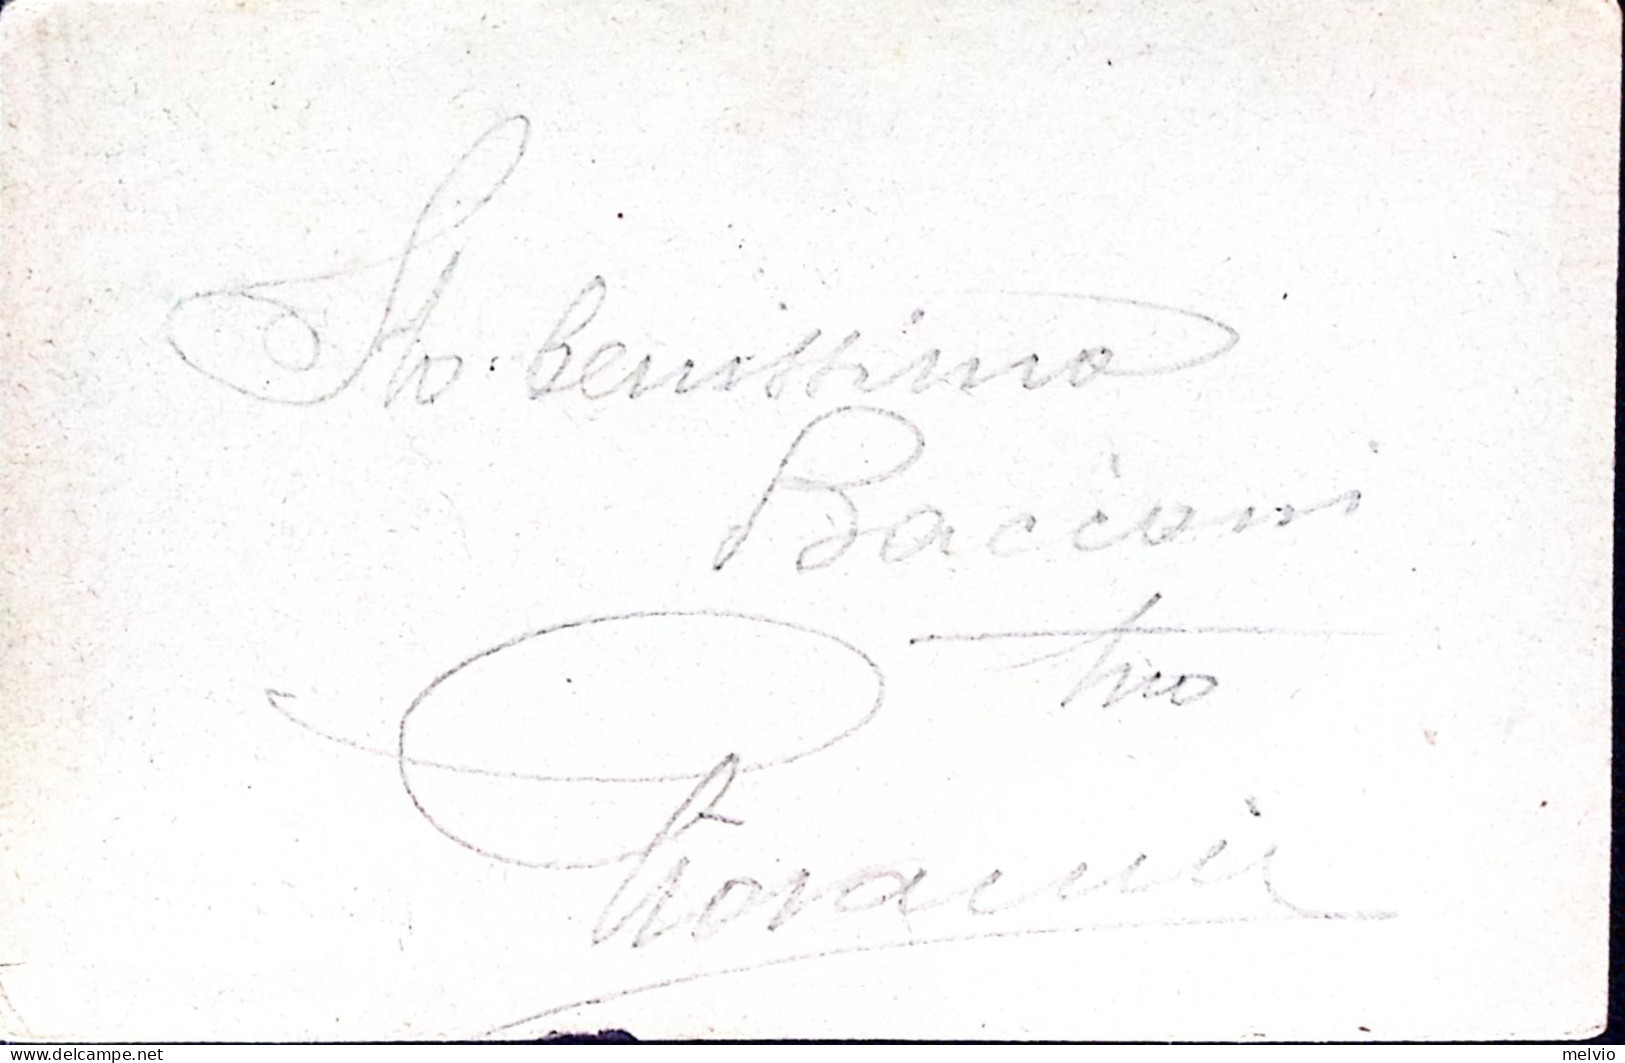 Sto benissimo
Bacioni
tuo
Giovanni
www.delcampe.net
melvio